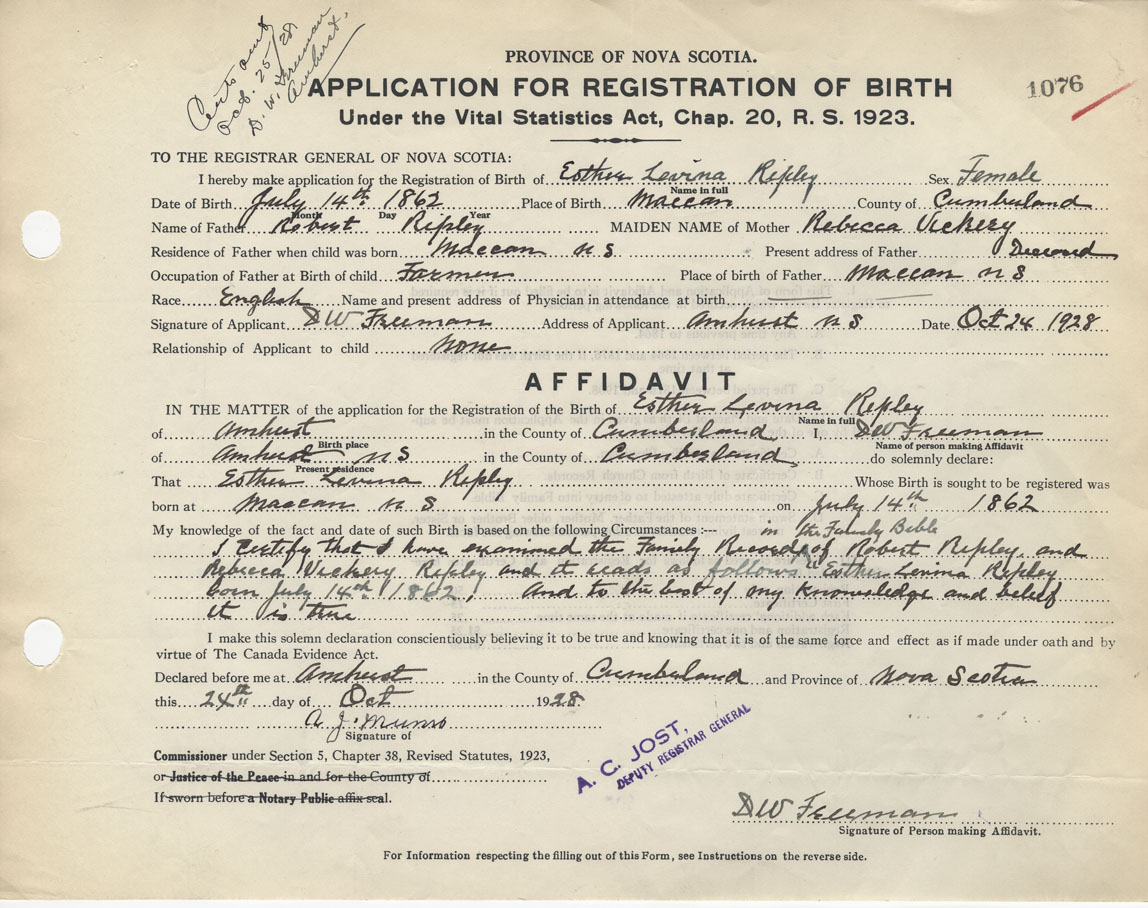 Certs sent
Oct. 25/28
D. W. Freeman
Amherst,
PROVINCE OF NOVA SCOTIA.
APPLICATION FOR REGISTRATION OF BIRTH
1076
Under the Vital Statistics Act, Chap. 20, R. S. 1923.
TO THE REGISTRAR GENERAL OF NOVA SCOTIA:
I hereby make application for the Registration of Birth of Esther Levina Ripley Sex Female
Name in full
Date of Birth July 14th 1862 Place of Birth Maccan County of Cumberland
Month Day Year
Name of Father Robert Ripley MAIDEN NAME of Mother Rebecca Vickery
Residence of Father when child was born Maccan N S Present address of Father Deceased
Occupation of Father at Birth of child Farmer Place of birth of Father Maccan N S
Race English Name and present address of Physician in attendance at birth
Signature of Applicant DW Freeman Address of Applicant Amherst N S Date Oct 24 1928
Relationship of Applicant to child None
AFFIDAVIT
IN THE MATTER of the application for the Registration of the Birth of Esther Levina Ripley
Name in full
of Amherst in the County of Cumberland I, DW Freeman
Birth place Name of person making Affidavit
of Amherst N S in the County of Cumberland do solemnly declare:
Present residence
That Esther Levina Ripley Whose Birth is sought to be registered was
born at Maccan N S. on July 14th 1862
My knowledge of the fact and date of such Birth is based on the following Circumstances :--
in the Family Bible
I Certify that I have examined the Family Record of Robert Ripley and
Rebecca Vickery Ripley and it reads as follows "Esther Levina Ripley
born July 14th 1862," And to the best of my knowledge and belief
it is true
I make this solemn declaration conscientiously believing it to be true and knowing that it is of the same force and effect as if made under oath and by
virtue of The Canada Evidence Act.
Declared before me at Amherst in the County of Cumberland and Province of Nova Scotia
this 24th day of Oct 1928
A. J. Munro
Signature of
Commissioner under Section 5, Chapter 38, Revised Statutes, 1923,
or Justice of the Peace in and for the County of
If sworn before a Notary Public affix seal.
A. C. JOST,
DEPUTY REGISTRAR GENERAL
DW Freeman
Signature of Person making Affidavit.
For Information respecting the filling out of this Form, see Instructions on the reverse side.